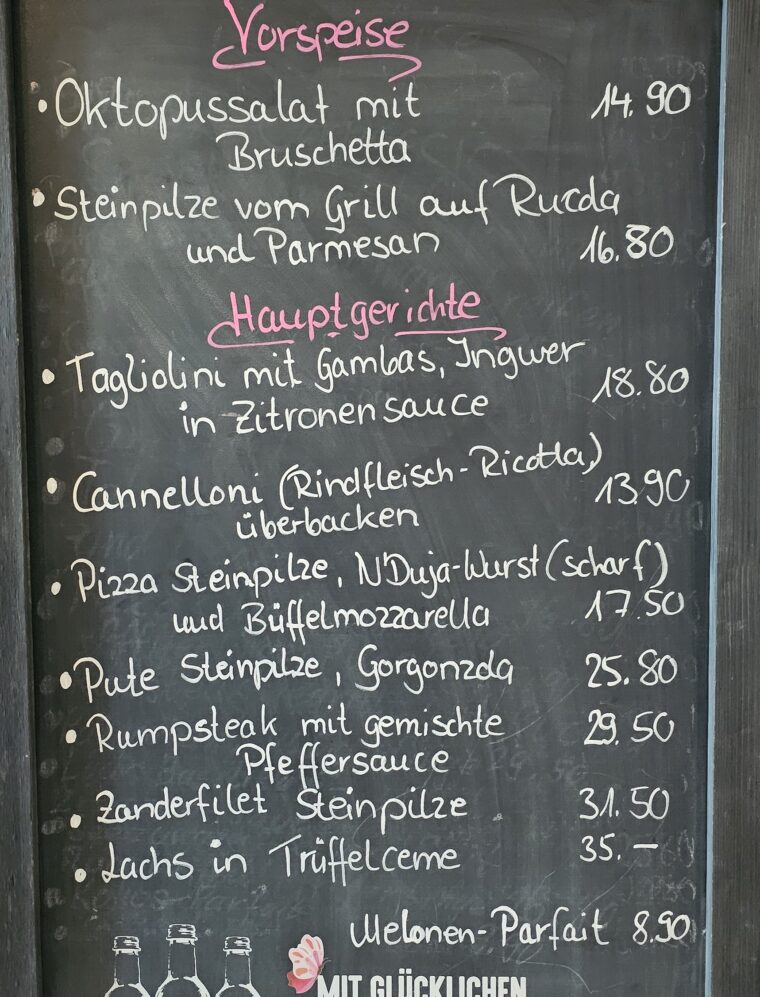 Vorspeise
• Oktopussalat mit 14.90
Bruschetta
• Steinpilze vom Grill auf Rucola
und Parmesan 16.80
Hauptgerichte
• Tagliolini mit Gambas, Ingwer
in Zitronensauce 18.80
• Cannelloni (Rindfleisch-Ricotta)
überbacken 13.90
• Pizza Steinpilze, N'Duja-Wurst (scharf)
und Büffelmozzarella 17.50
• Pute Steinpilze, Gorgonzola 25.80
• Rumpsteak mit gemischte 29.50
Pfeffersauce
• Zanderfilet Steinpilze 31.50
• Lachs in Trüffelceme 35.–
Melonen-Parfait 8.90
MIT GLÜCKLICHEN